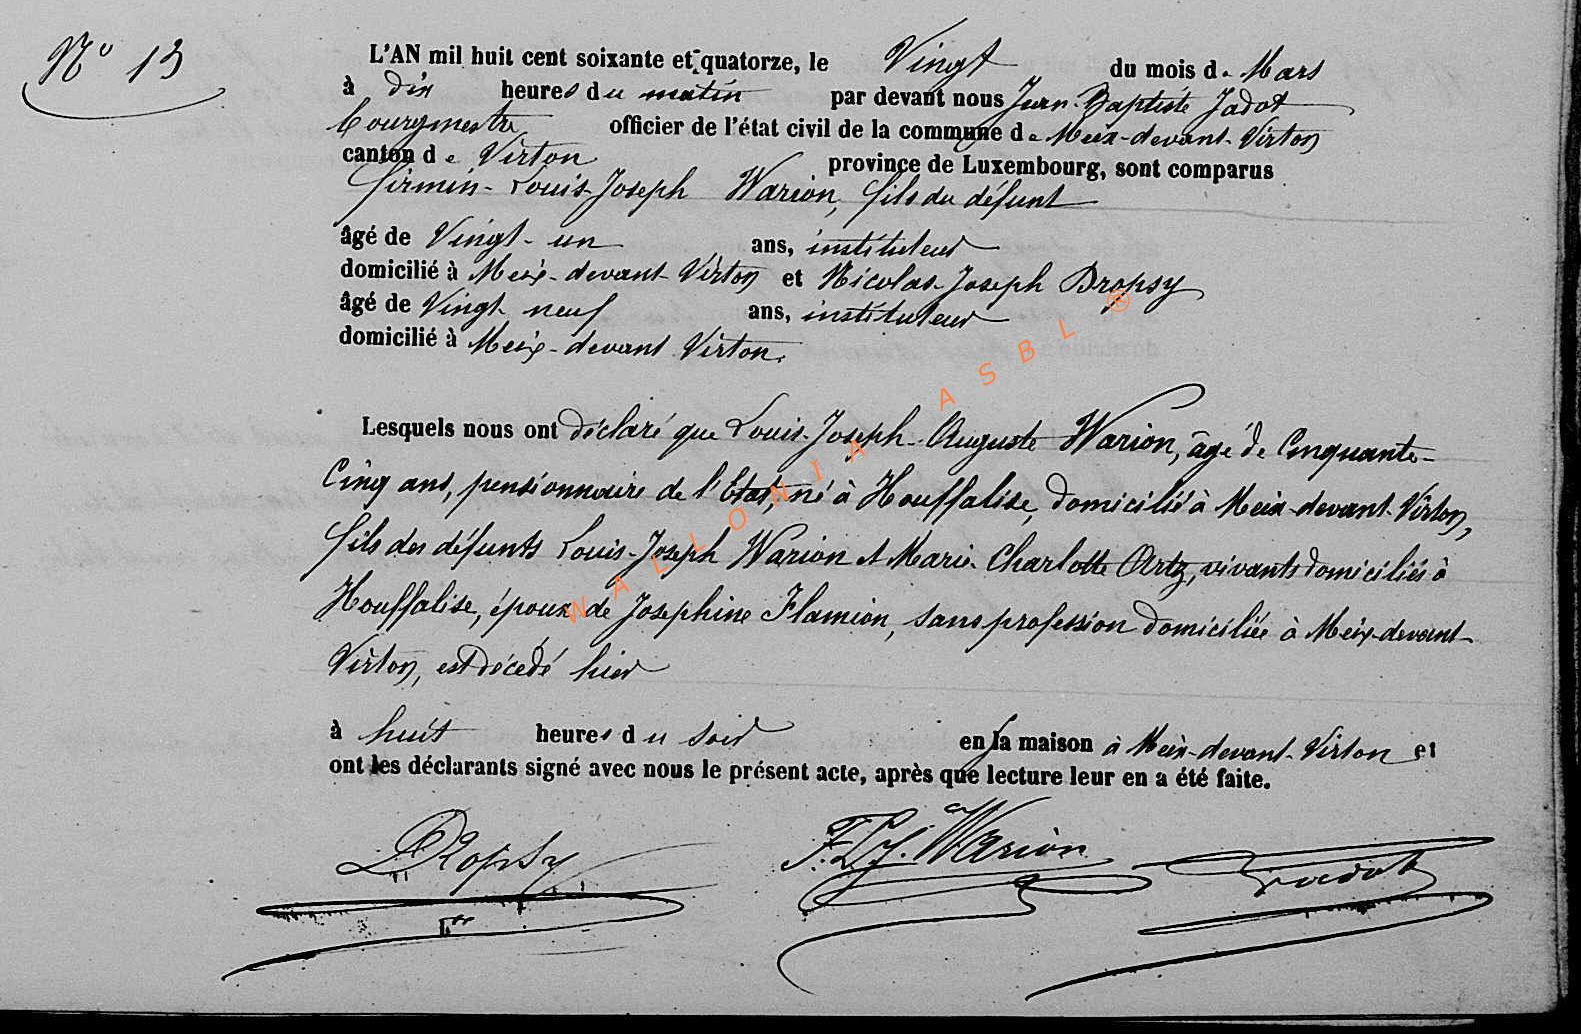 N° 13
L'AN mil huit cent soixante et quatorze, le Vingt du mois de Mars
à dix heures du matin par devant nous Jean-Baptiste Jadot
bourgmestre officier de l'état civil de la commune de Meix-devant-Virton
canton de Virton province de Luxembourg, sont comparus
Firmin-Louis-Joseph Warion, fils du défunt
âgé de Vingt-un ans, instituteur
domicilié à Meix-devant-Virton et Nicolas-Joseph Dropsy
âgé de Vingt-neuf ans, instituteur
domicilié à Meix-devant Virton.
Lesquels nous ont déclaré que Louis-Joseph-Auguste Warion, âgé de Cinquante-
Cinq ans, pensionnaire de l'Etat, né à Houffalise, domicilié à Meix-devant-Virton,
fils des défunts Louis-Joseph Warion et Marie-Charlotte Artz, vivants domiciliés à
Houffalise, époux de Josephine Flamion, sans profession domiciliée à Meix-devant-
Virton, est décédé hier
à huit heures du soir en sa maison à Meix-devant-Virton et
ont les déclarants signé avec nous le présent acte, après que lecture leur en a été faite.
Dropsy F.L.J. Warion Jadot
WALLONIA ASBL ®